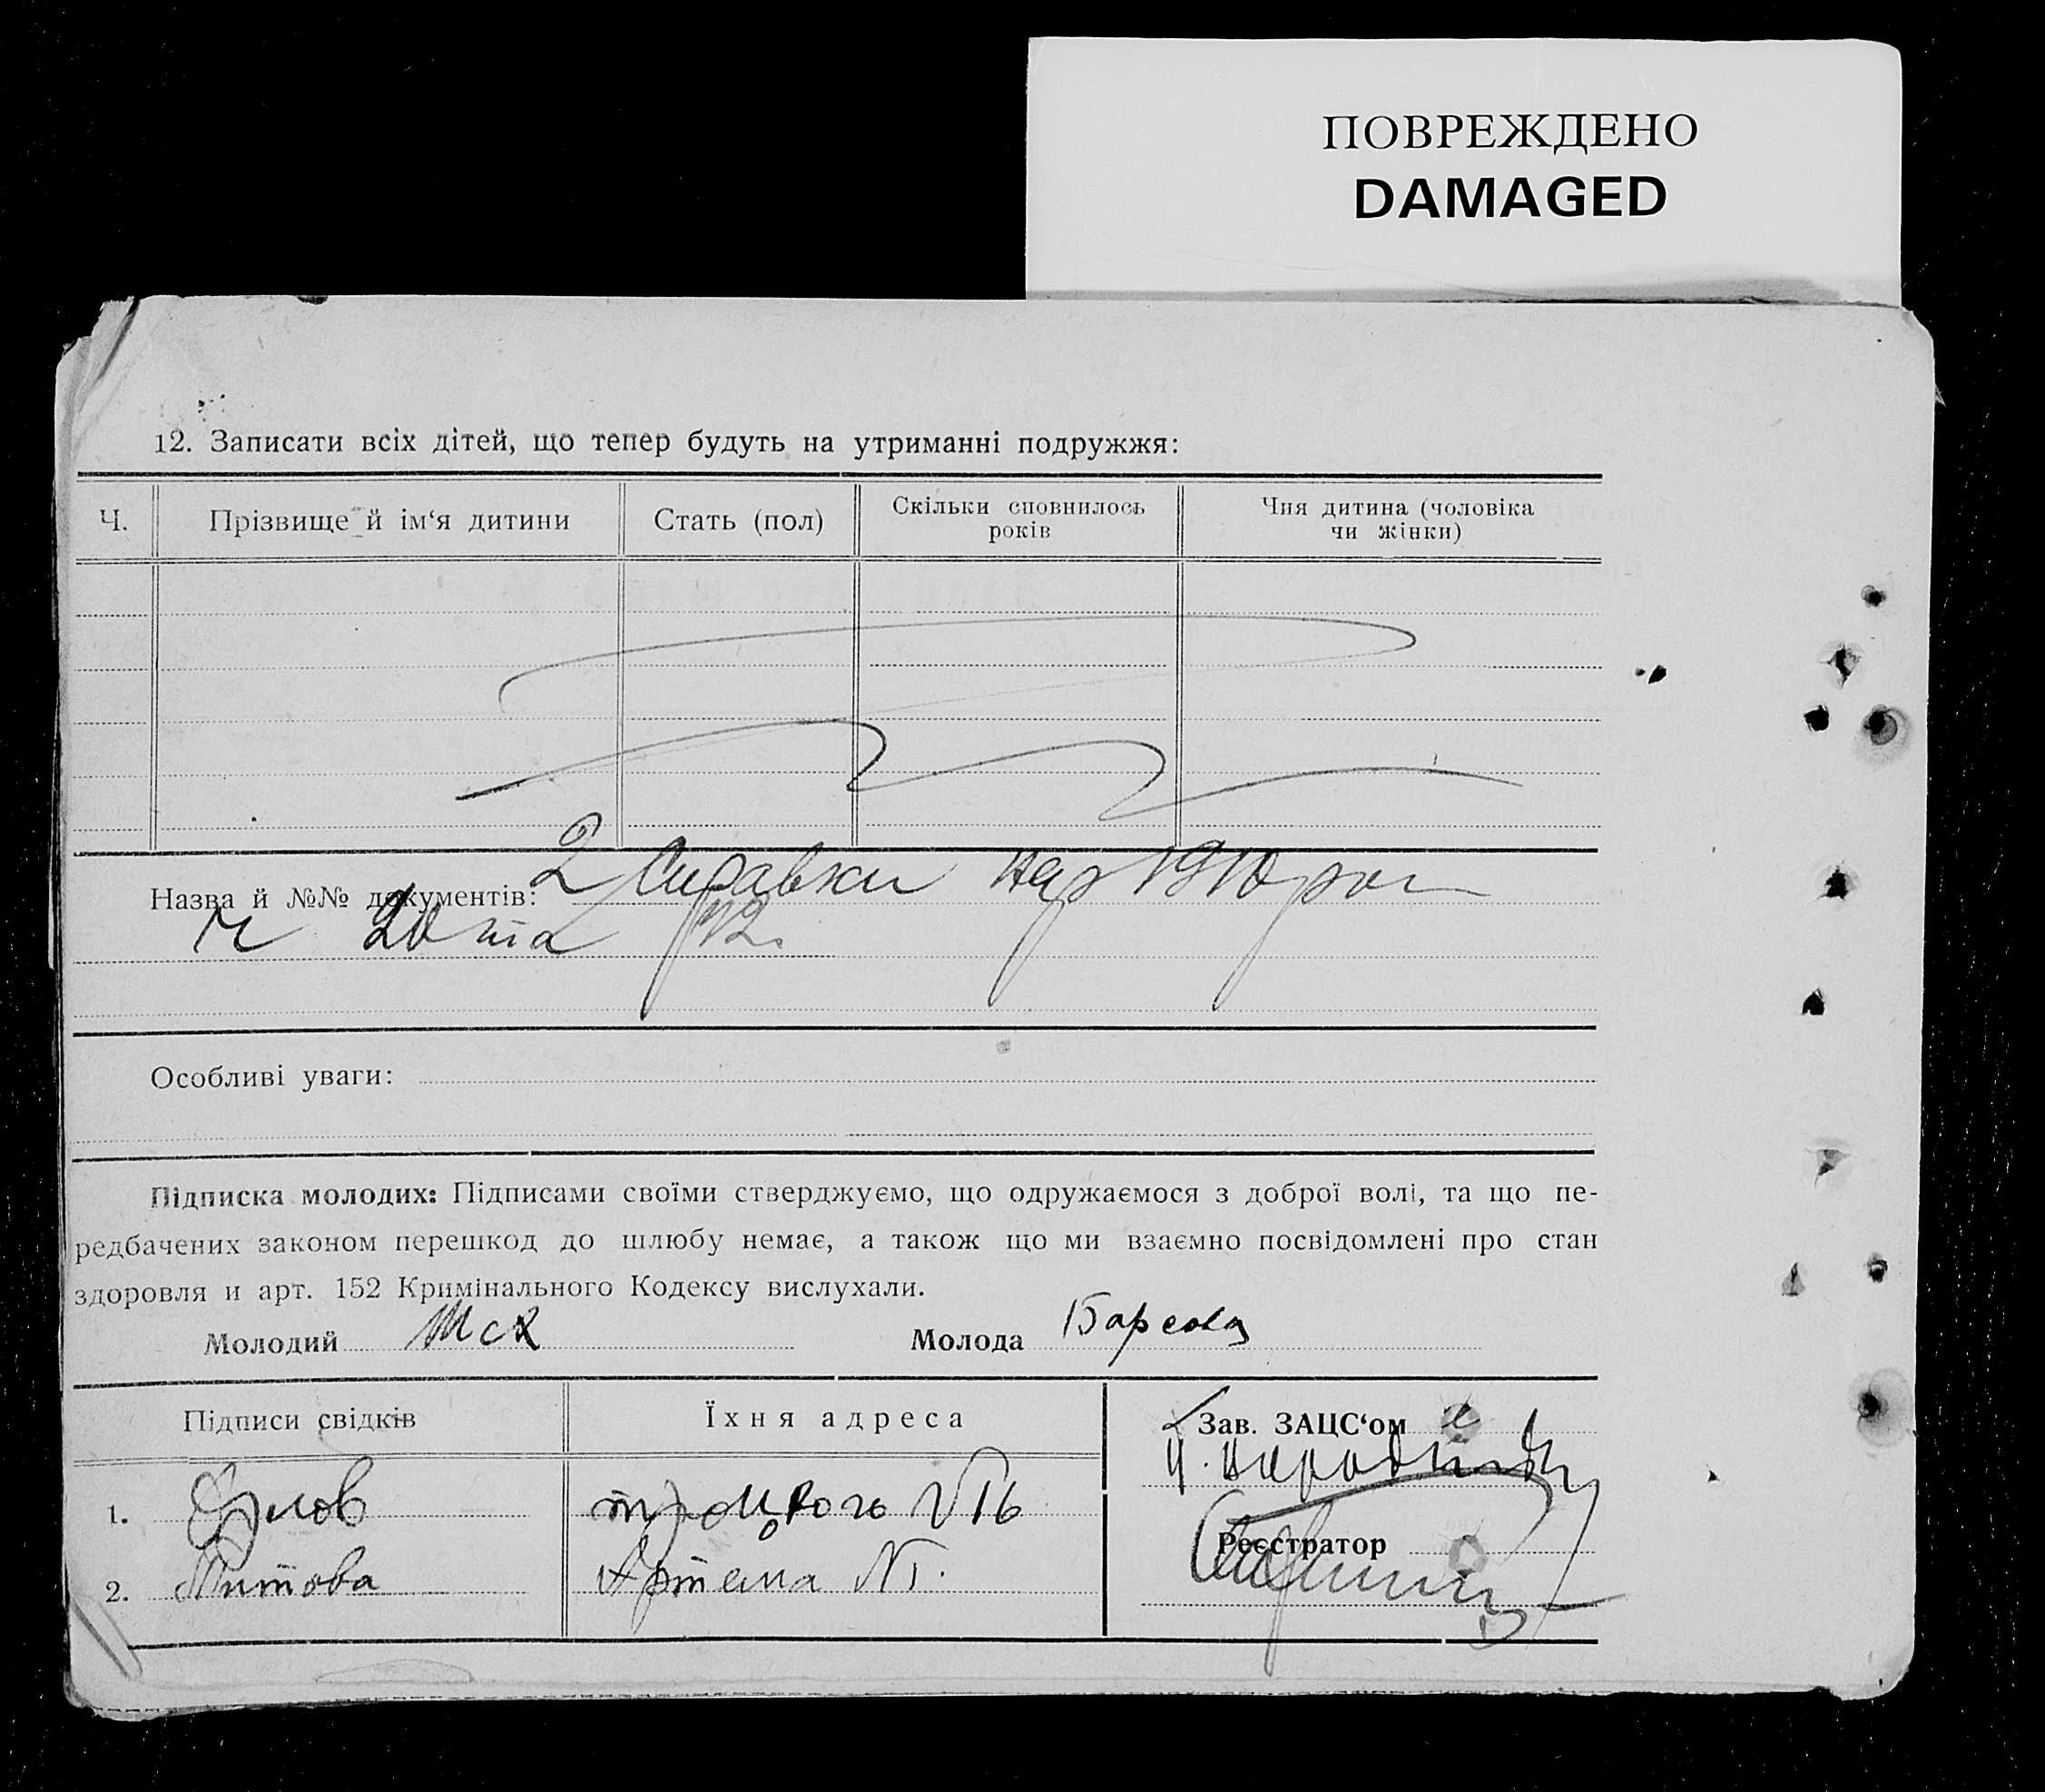 ПОВРЕЖДЕНО
DAMAGED
12. Записати всіх дітей, що тепер будуть на утриманні подружжя:
Ч.
Прізвище й ім‘я дитини
Стать (пол)
Скільки сповнилось
років
Чия дитина (чоловіка
чи жінки)
2 Справки
Назва й №№ документів:
Особливі уваги:
Підписка молодих: Підписами своїми стверджуємо, що одружаємося з доброї волі, та що пе-
редбачених законом перешкод до шлюбу немає, а також що ми взаємно посвідомлені про стан
здоровля и арт. 152 Кримінального Кодексу вислухали.
Молодий
Молода
Підписи свідків
Їхня адреса
Зав. ЗАЦС‘ом
1.
№ 16
Реєстратор
2. Титова
Артема № 1.